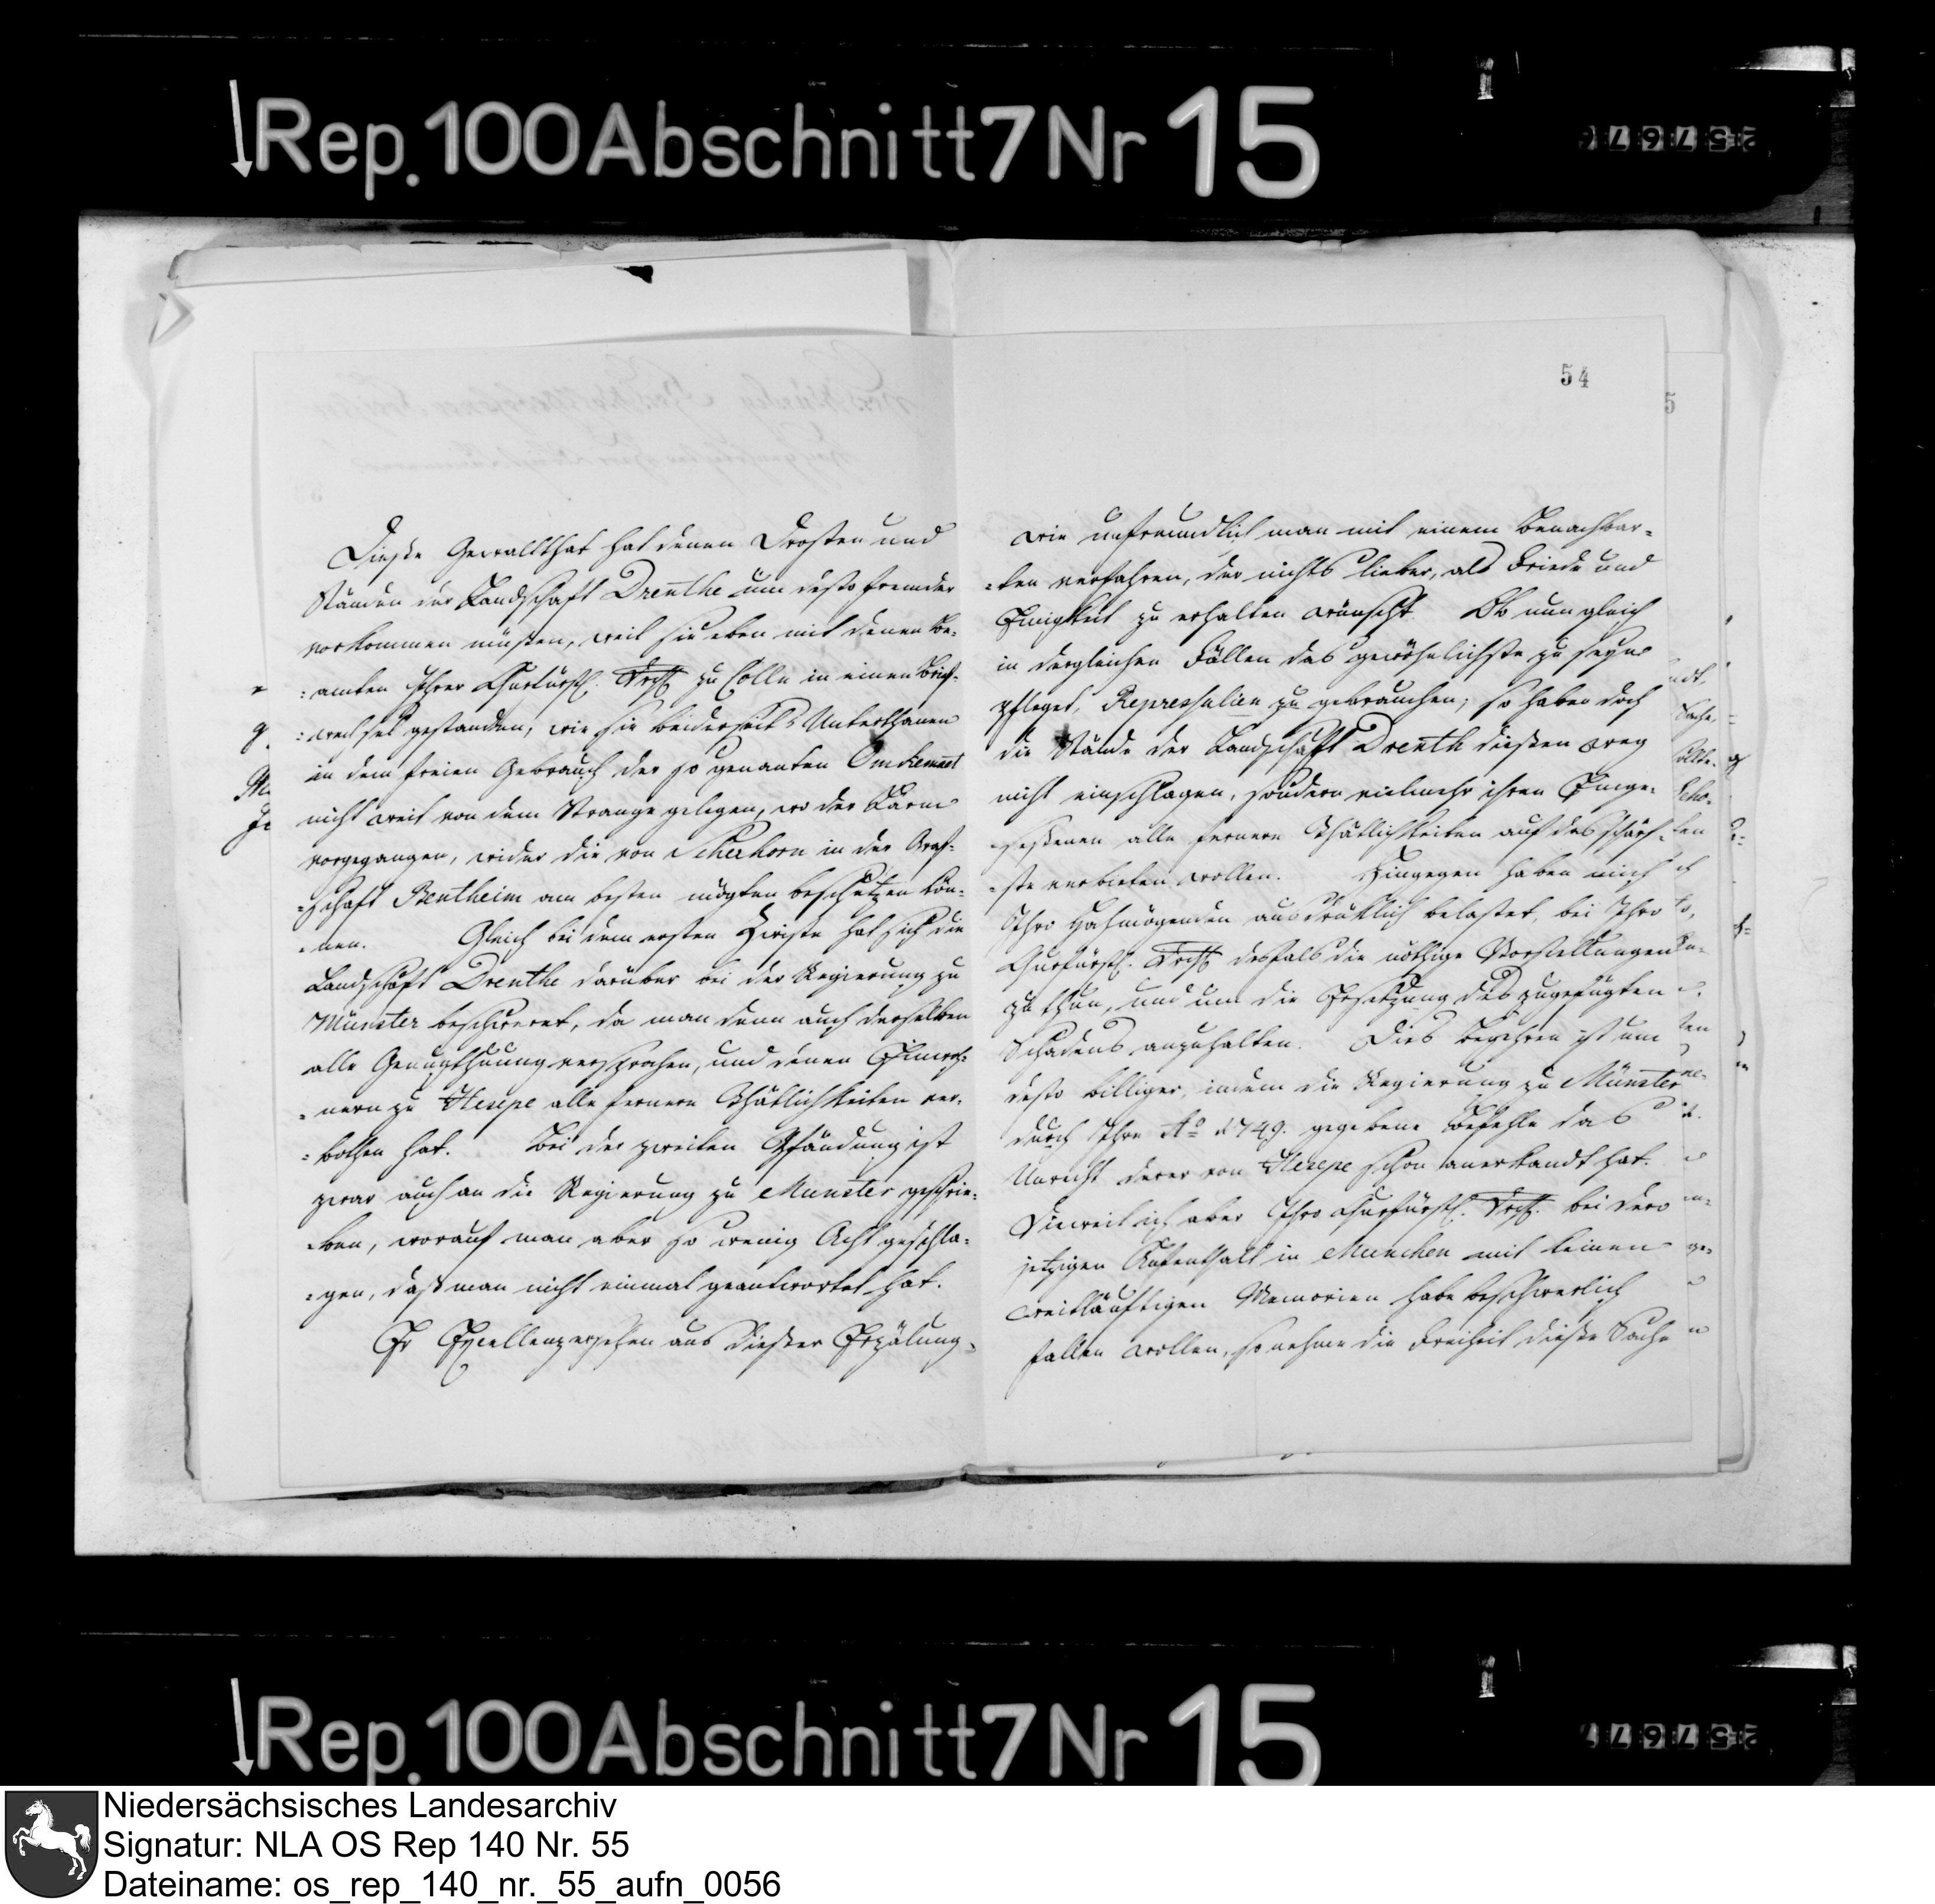 Rep. 100 Abschnitt 7 Nr 15
54
5
Dieße Gewallthat hat denen Drosten und
Ständen der Landschaft Drenthe um desto fremder
vorkommen müßen, weil sie eben mit denen Be-
:amten Ihrer Churfürstl. Drchl. zu Cölln in einen Brief-
:wechsel gestanden, wie sie beiderseits Unterthanen
in dem freien Gebrauch der so genanten
nicht weit von dem Strange gelegen, wo der Lärm
vorgegangen, wider die von Scherhorn in der Graf-
:schaft Bentheim am besten mögten beschützen kön-
:nen. Gleich bei dem ersten Zwiste hat sich die
Landschaft Drenthe darüber bei der Regierung zu
Münster beschweret, da man denn auch derselben
alle Genugthuung versprochen, und denen Einwoh-
:nern zu Hesepe alle fernere Thätlichkeiten ver-
:bothen hat. Bei der zweiten Pfändung ist
zwar auch an die Regierung zu Munster geschrie-
:ben, worauf man aber so wenig Acht geschla-
:gen, daß man nicht einmal geantwortet hat.
Ew Excellenz ersehen aus dießer Erzälung,
wie unfreundlich man mit einem Benachbar-
:ten verfahren, der nichts lieber, als Friede und
Einigkeit zu erhalten wünscht. Ob nun gleich
in dergleichen Fällen das gewöhnlichste zu seyn
pfleget, Repressalien zu gebrauchen; so haben doch
die Stände der Landschaft Drenth dießen Weg
nicht einschlagen, sondern vielmehr ihren Einge-
:seßenen alle fernere Thätlichkeiten auf das schärf-
:ste verbieten wollen. Hingegen haben mich
Ihro Hochmögenden ausdrüklich belastet, bei Ihro
Churfürstl. Drchl. desfals die nöthige Vorstellungen
zu thun, und um die Ersetzung des zugefügten
Schadens anzuhalten. Dies Begehren ist um
desto billiger, indem die Regierung zu Münster
durch Ihre Aº 1749. gegebene Befehle das
Unrecht derer von Hesepe schon anerkandt hat.
Dieweil ich aber Ihro Churfürstl. Drchl. bei dero
jetzigen Aufenthalt in Munchen mit keinen
weitläuftigen Memorien habe beschwerlich
fallen wollen, so nehme die Freiheit dieße Sache
Rep. 100 Abschnitt 7 Nr 15
Niedersächsisches Landesarchiv
Signatur: NLA OS Rep 140 Nr. 55
Dateiname: os_rep_140_nr._55_aufn_0056